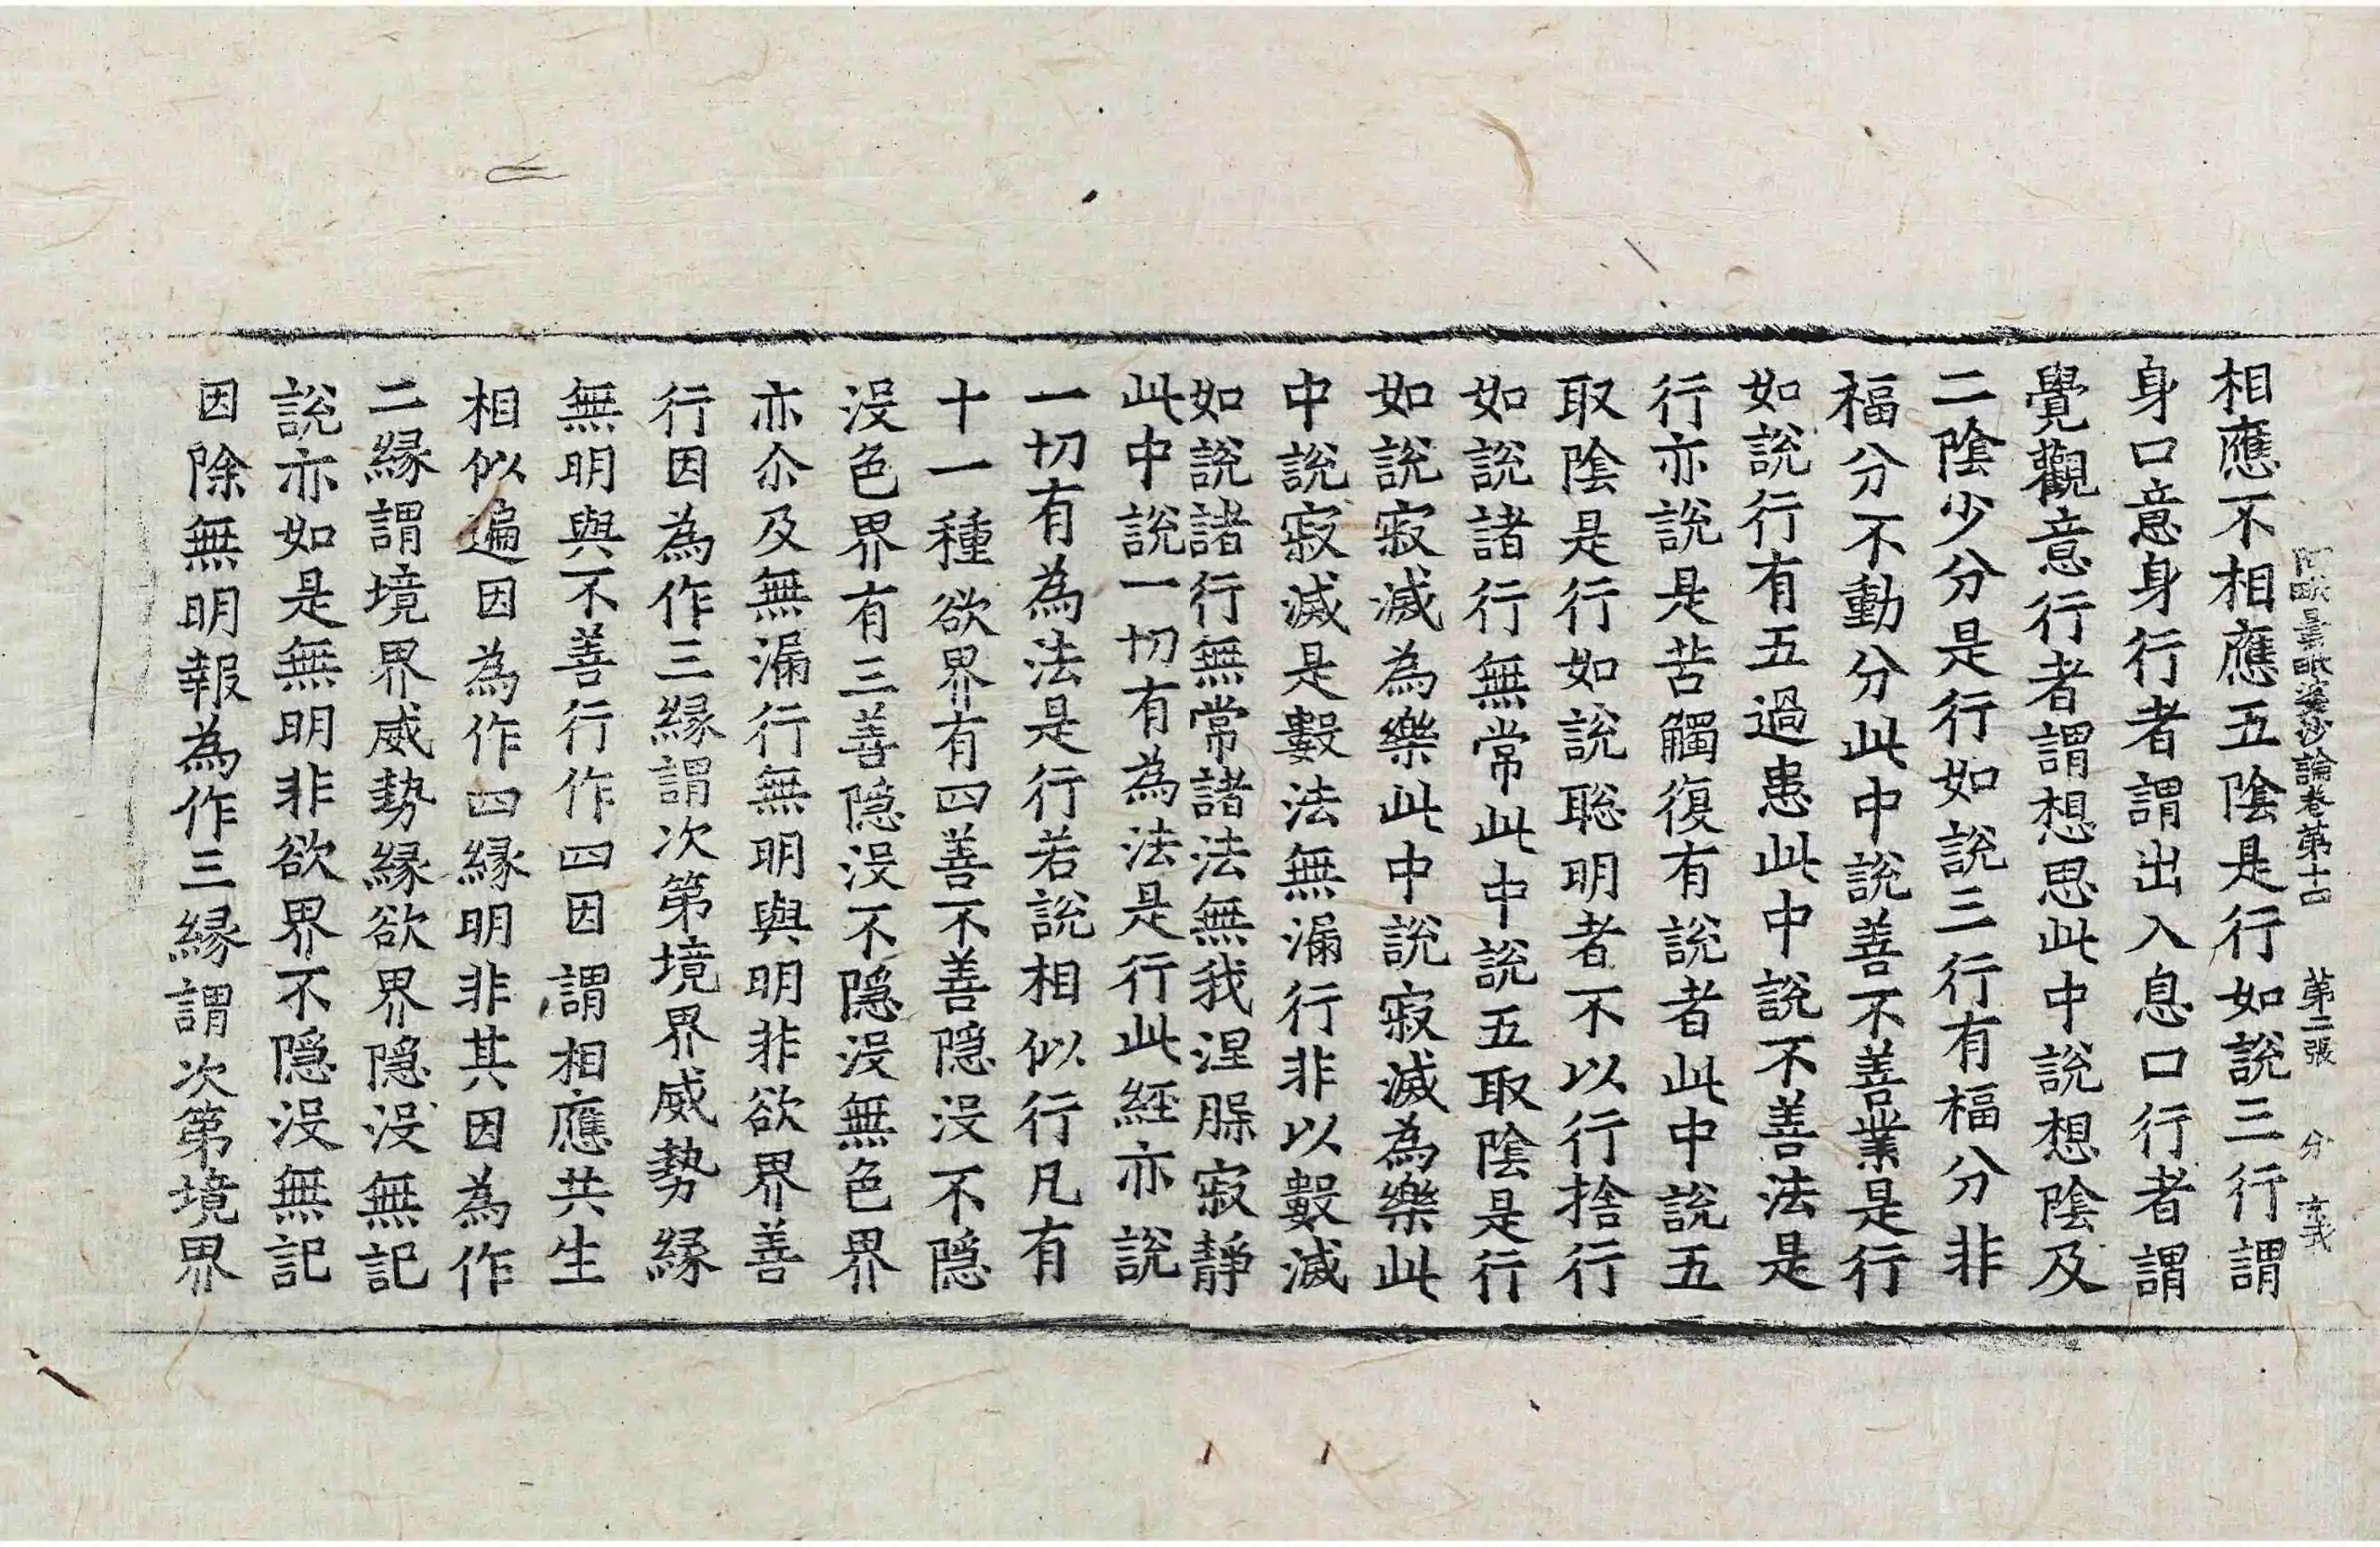 阿毗曇毗婆沙論卷第十四 第二張 分
相應不相應五陰是行如說三行謂
身口意身行者謂出入息口行者謂
覺觀意行者謂想思此中說想陰及
二陰少分是行如說三行有福分非
福分不動分此中說善不善業是行
如說行有五過患此中說不善法是
行亦說是苦觸復有說者此中說五
取陰是行如說聡明者不以行捨行
如說諸行無常此中說五取陰是行
如說寂滅為樂此中說寂滅為樂此
中說寂滅是數法無漏行非以數滅
如說諸行無常諸法無我涅脲寂靜
此中說一切有為法是行此經亦說
一切有為法是行若說相似行凡有
十一種欲界有四善不善隱沒不隱
沒色界有三善隱沒不隱沒無色界
亦尒及無漏行無明與明非欲界善
行因為作三緣謂次第境界威勢緣
無明與不善行作四因謂相應共生
相似遍因為作四緣明非其因為作
二緣謂境界威勢緣欲界隱沒無記
說亦如是無明非欲界不隱沒無記
因除無明報為作三緣謂次第境界